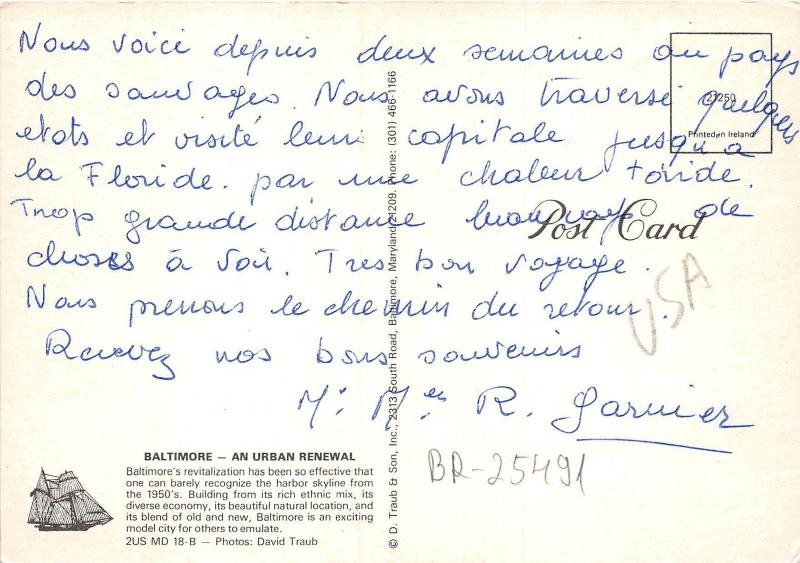 Nous voici depuis deux semaines au pays
des sauvages. Nous avons traversé quelques
etats et visité leur capitale jusqu'a
la Floride. par une chaleur toride.
Trop grande distance beaucoup de
choses à voir. Tres bon voyage.
Nous prenons le chemin du retour.
Recevez nos bons souvenirs
Mr. Mes R. Garnier
21250
Printed in Ireland
Post Card
USA
BR-25491
© D. Traub & Son, Inc., 2313 South Road, Baltimore, Maryland 21209. Phone: (301) 466-1166
BALTIMORE — AN URBAN RENEWAL
Baltimore's revitalization has been so effective that
one can barely recognize the harbor skyline from
the 1950's. Building from its rich ethnic mix, its
diverse economy, its beautiful natural location, and
its blend of old and new, Baltimore is an exciting
model city for others to emulate.
2US MD 18-B — Photos: David Traub